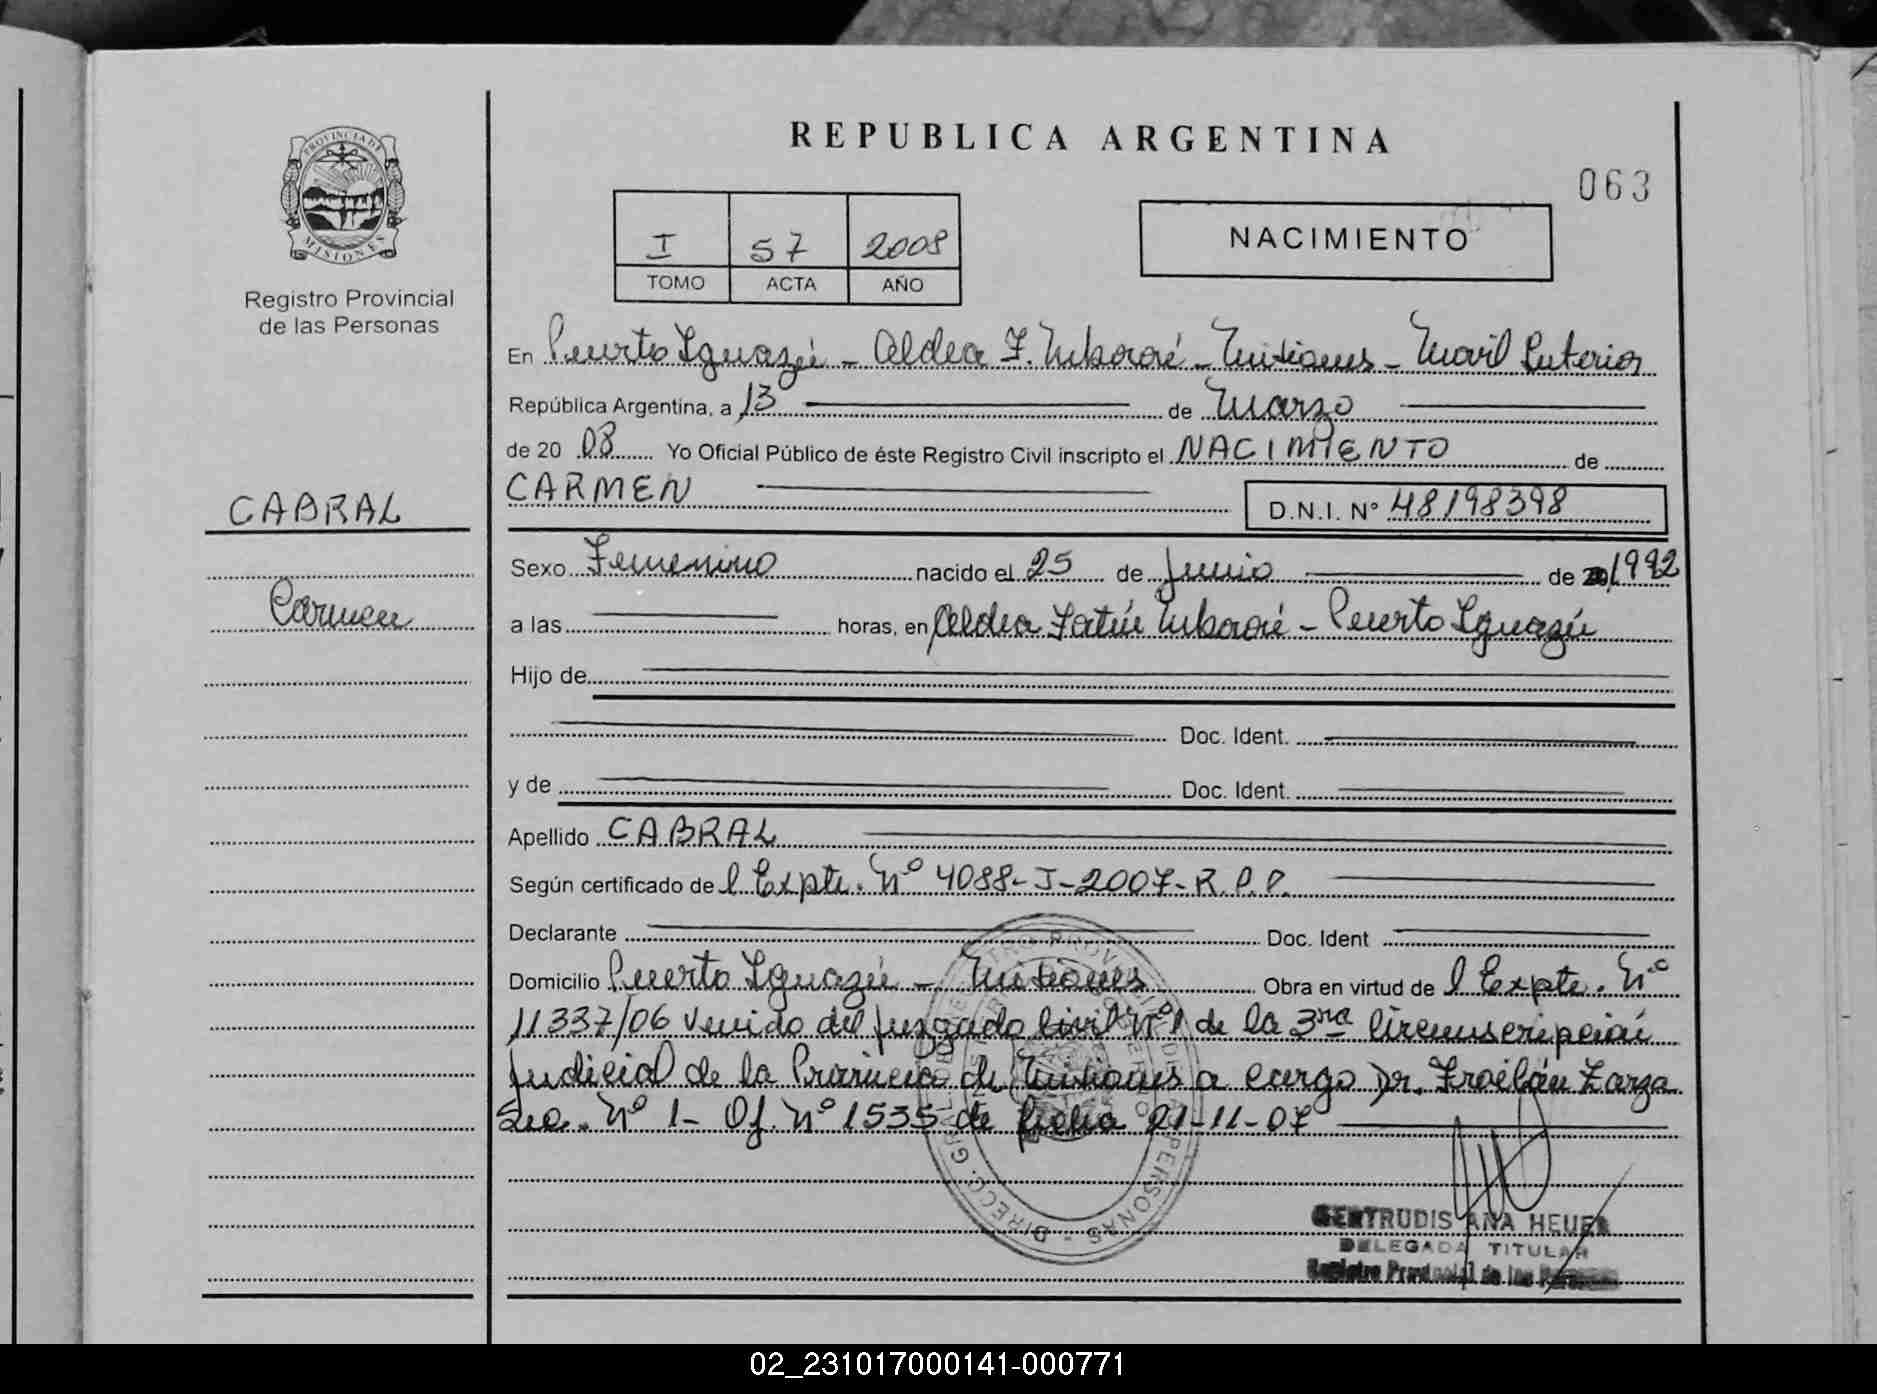 PROVINCIA DE
MISIONES
Registro Provincial
de las Personas
CABRAL
Carmen
REPUBLICA ARGENTINA
063
I 57 2008
TOMO ACTA AÑO
NACIMIENTO
En Puerto Iguazú - Aldea F. Mbororé - Misiones - Movil Interior
República Argentina, a 13 de Marzo
de 20 08 Yo Oficial Público de éste Registro Civil inscripto el NACIMIENTO de
CARMEN D.N.I. N° 48198398
Sexo Femenino nacido el 25 de Junio de 20 1992
a las horas, en Aldea Fortín Mbororé - Puerto Iguazú
Hijo de
Doc. Ident.
y de Doc. Ident.
Apellido CABRAL
Según certificado de l Expte. Nº 4088-J-2007-R.P.P.
Declarante Doc. Ident
Domicilio Puerto Iguazú - Misiones Obra en virtud de l Expte. Nº
11337/06 venido del Juzgado Civil Nº 1 de la 3ra Circunscripción
Judicial de la Provincia de Misiones a cargo Dr. Froilán Zarza
Sec. Nº 1- Of. Nº 1535 de fecha 21-11-07
GERTRUDIS ANA HEUER
DELEGADA TITULAR
Registro Provincial de las Personas
02_231017000141-000771